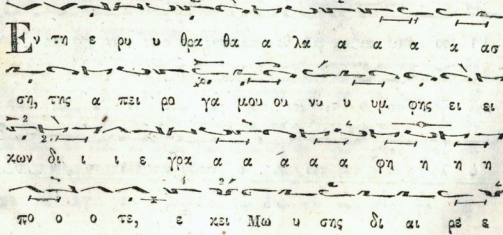 Εν τη ε ρυ υ θρα θα α λα α α α α ασ
ση, της α πει ρο γα μου ου νυ υ υμ φης ει ει
κων δι ι ι ε γρα α α α α α φη η η η
πο ο ο τε, ε κει Μω υ σης δι αι ρε ε